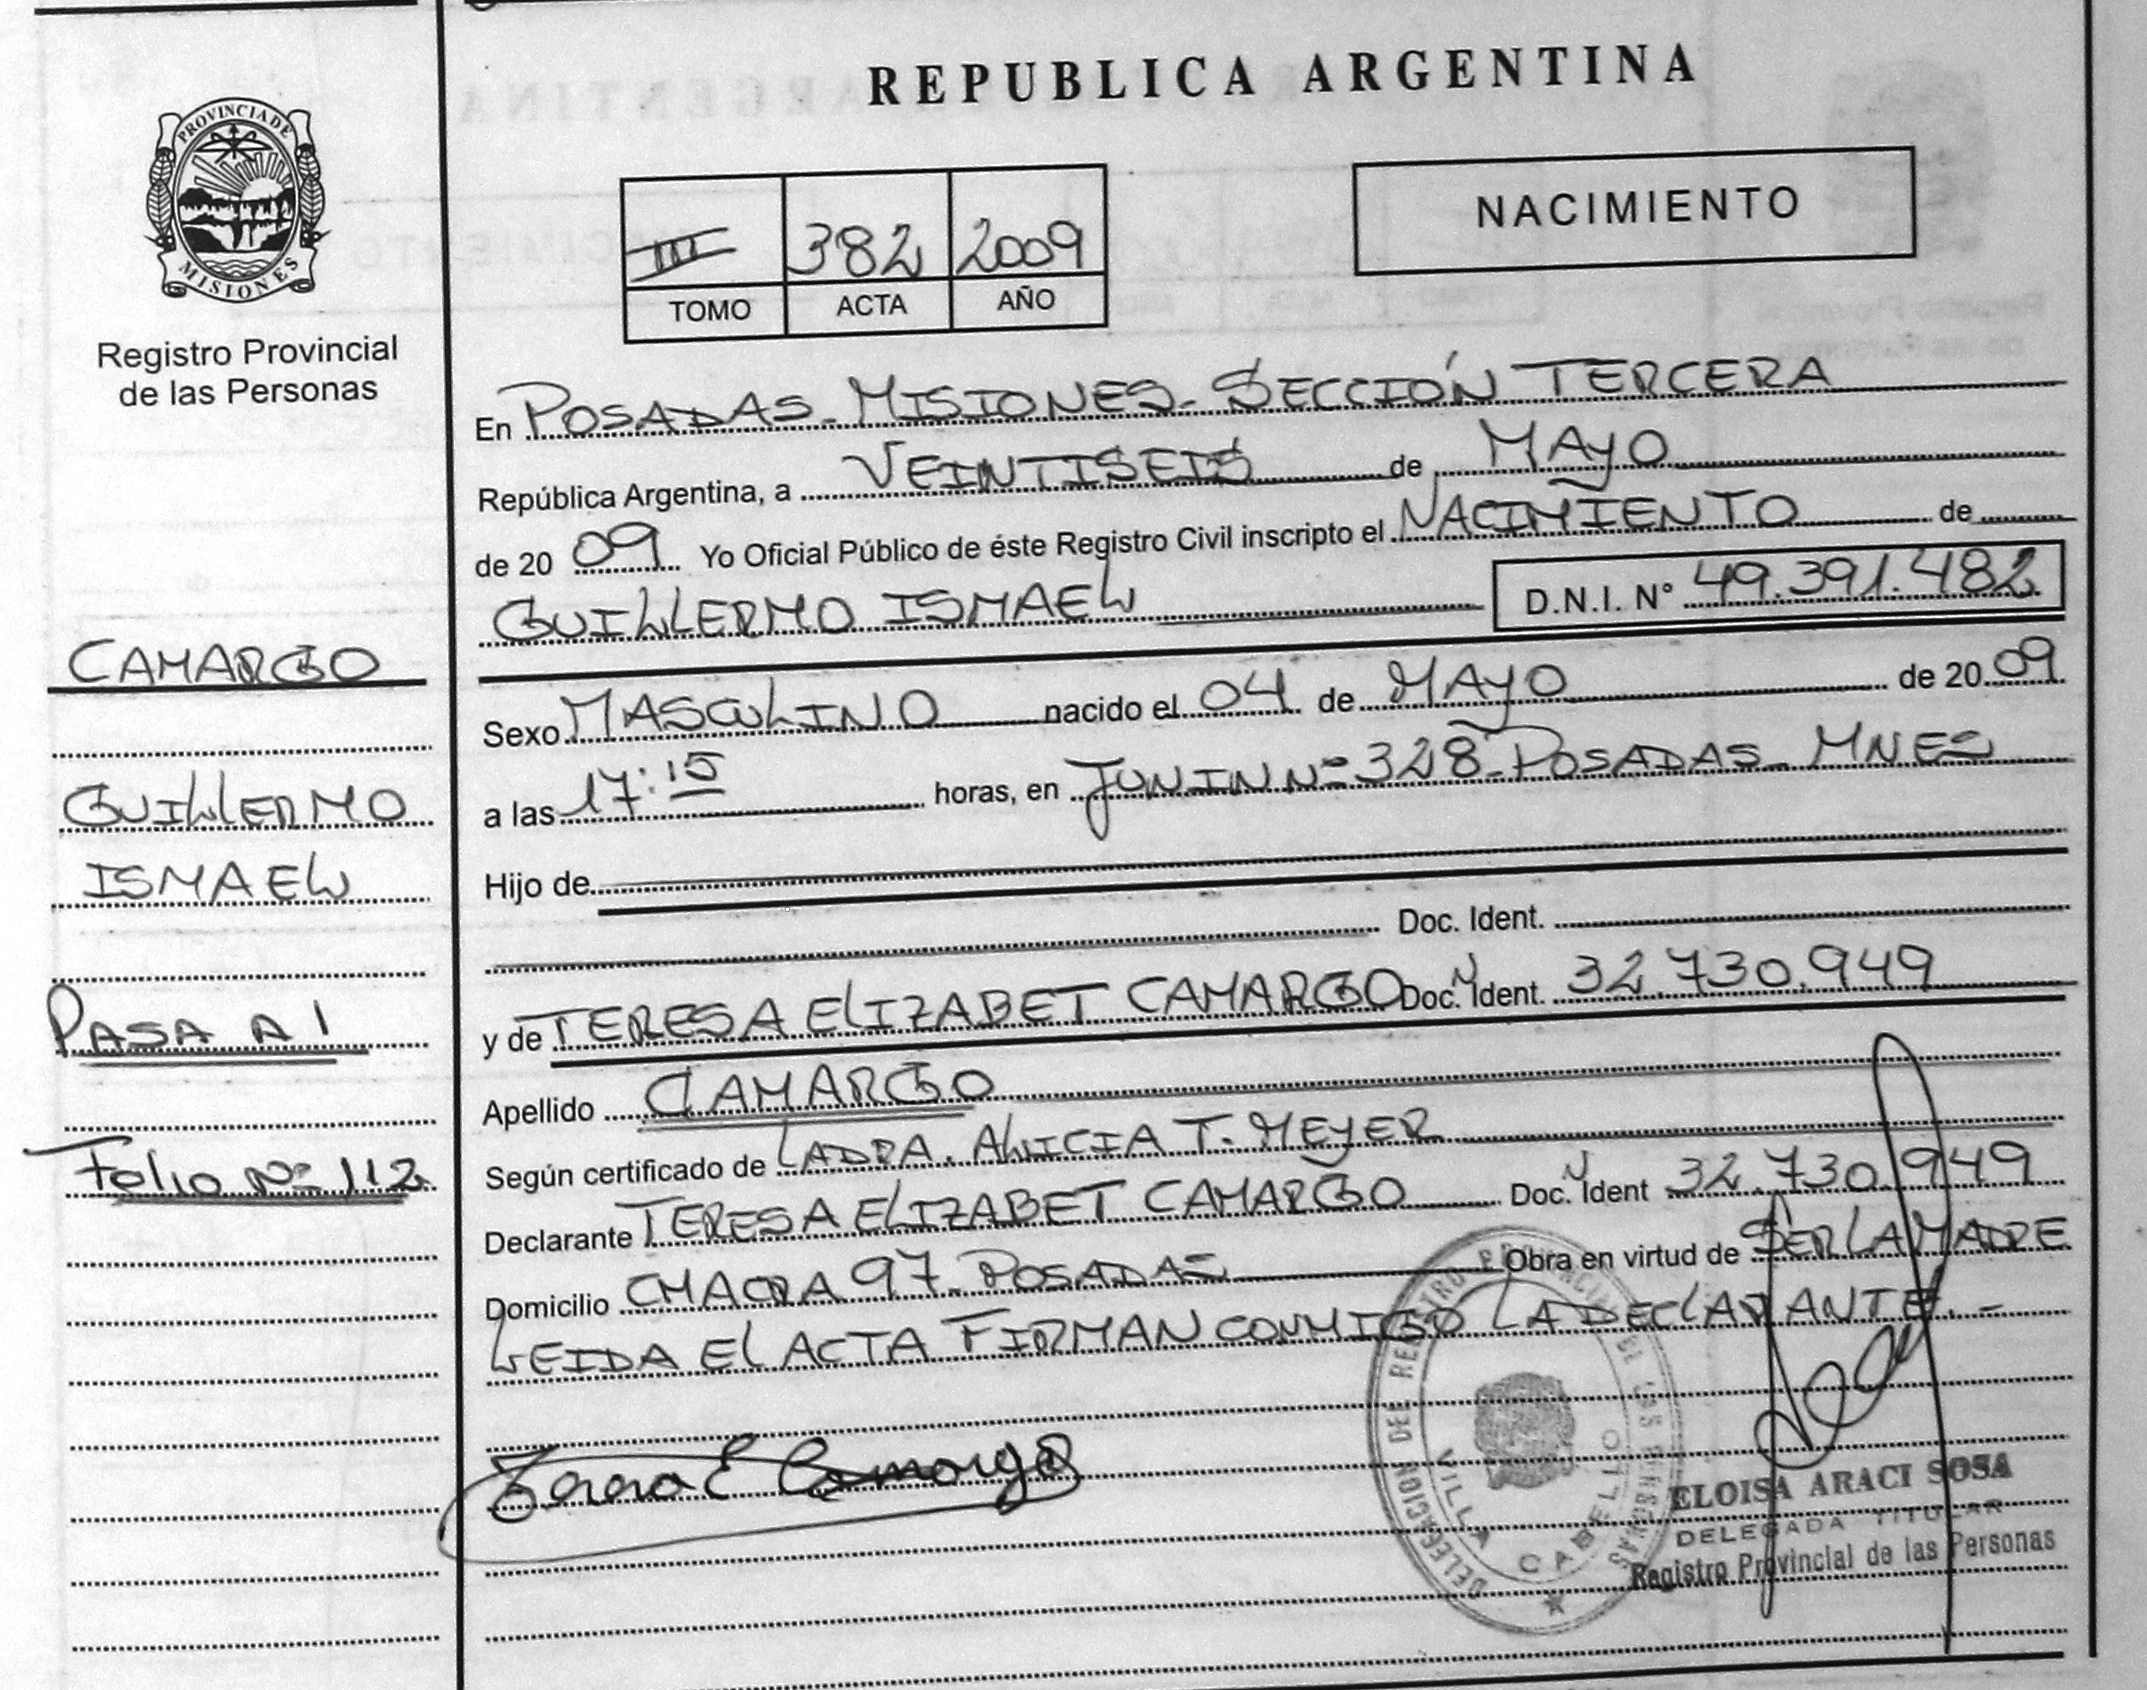 REPUBLICA ARGENTINA
PROVINCIA DE
MISIONES
Registro Provincial
de las Personas
NACIMIENTO
III 382 2009
TOMO ACTA AÑO
En POSADAS-MISIONES-SECCIÓN TERCERA
República Argentina, a VEINTISEIS de MAYO
de 20 09 Yo Oficial Público de éste Registro Civil inscripto el NACIMIENTO de
GUILLERMO ISMAEL D.N.I. N° 49.391.482
CAMARGO
GUILLERMO
ISMAEL
PASA A 1
Folio Nº 112
Sexo MASCULINO nacido el 04 de MAYO de 20 09
a las 17:15 horas, en JUNIN Nº 328-POSADAS-MNES
Hijo de
Doc. Ident.
y de TERESA ELIZABET CAMARGO Doc. Ident. 32.730.949
Apellido CAMARGO
Según certificado de LA DRA. ALICIA T. MEYER
Declarante TERESA ELIZABET CAMARGO Doc. Ident 32.730.949
Domicilio CHACRA 97-POSADAS Obra en virtud de SER LA MADRE
LEIDA EL ACTA FIRMAN CONMIGO LA DECLARANTE.-
Teresa E Camargo
DELEGACION DEL REGISTRO PROVINCIAL DE LAS PERSONAS
VILLA CABELLO
ELOISA ARACI SOSA
DELEGADA TITULAR
Registro Provincial de las Personas